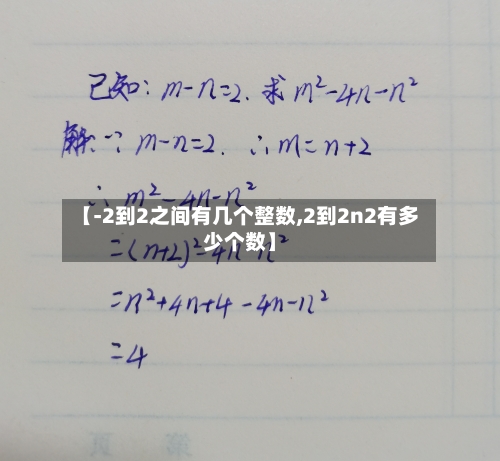 已知: m-n=2. 求 m²-4n-n²
解: ∵ m-n=2. ∴ m=n+2
∴ m²-4n-n²
【-2到2之间有几个整数,2到2n2有多
少个数】
=(n+2)²-4n-n²
=n²+4n+4-4n-n²
=4